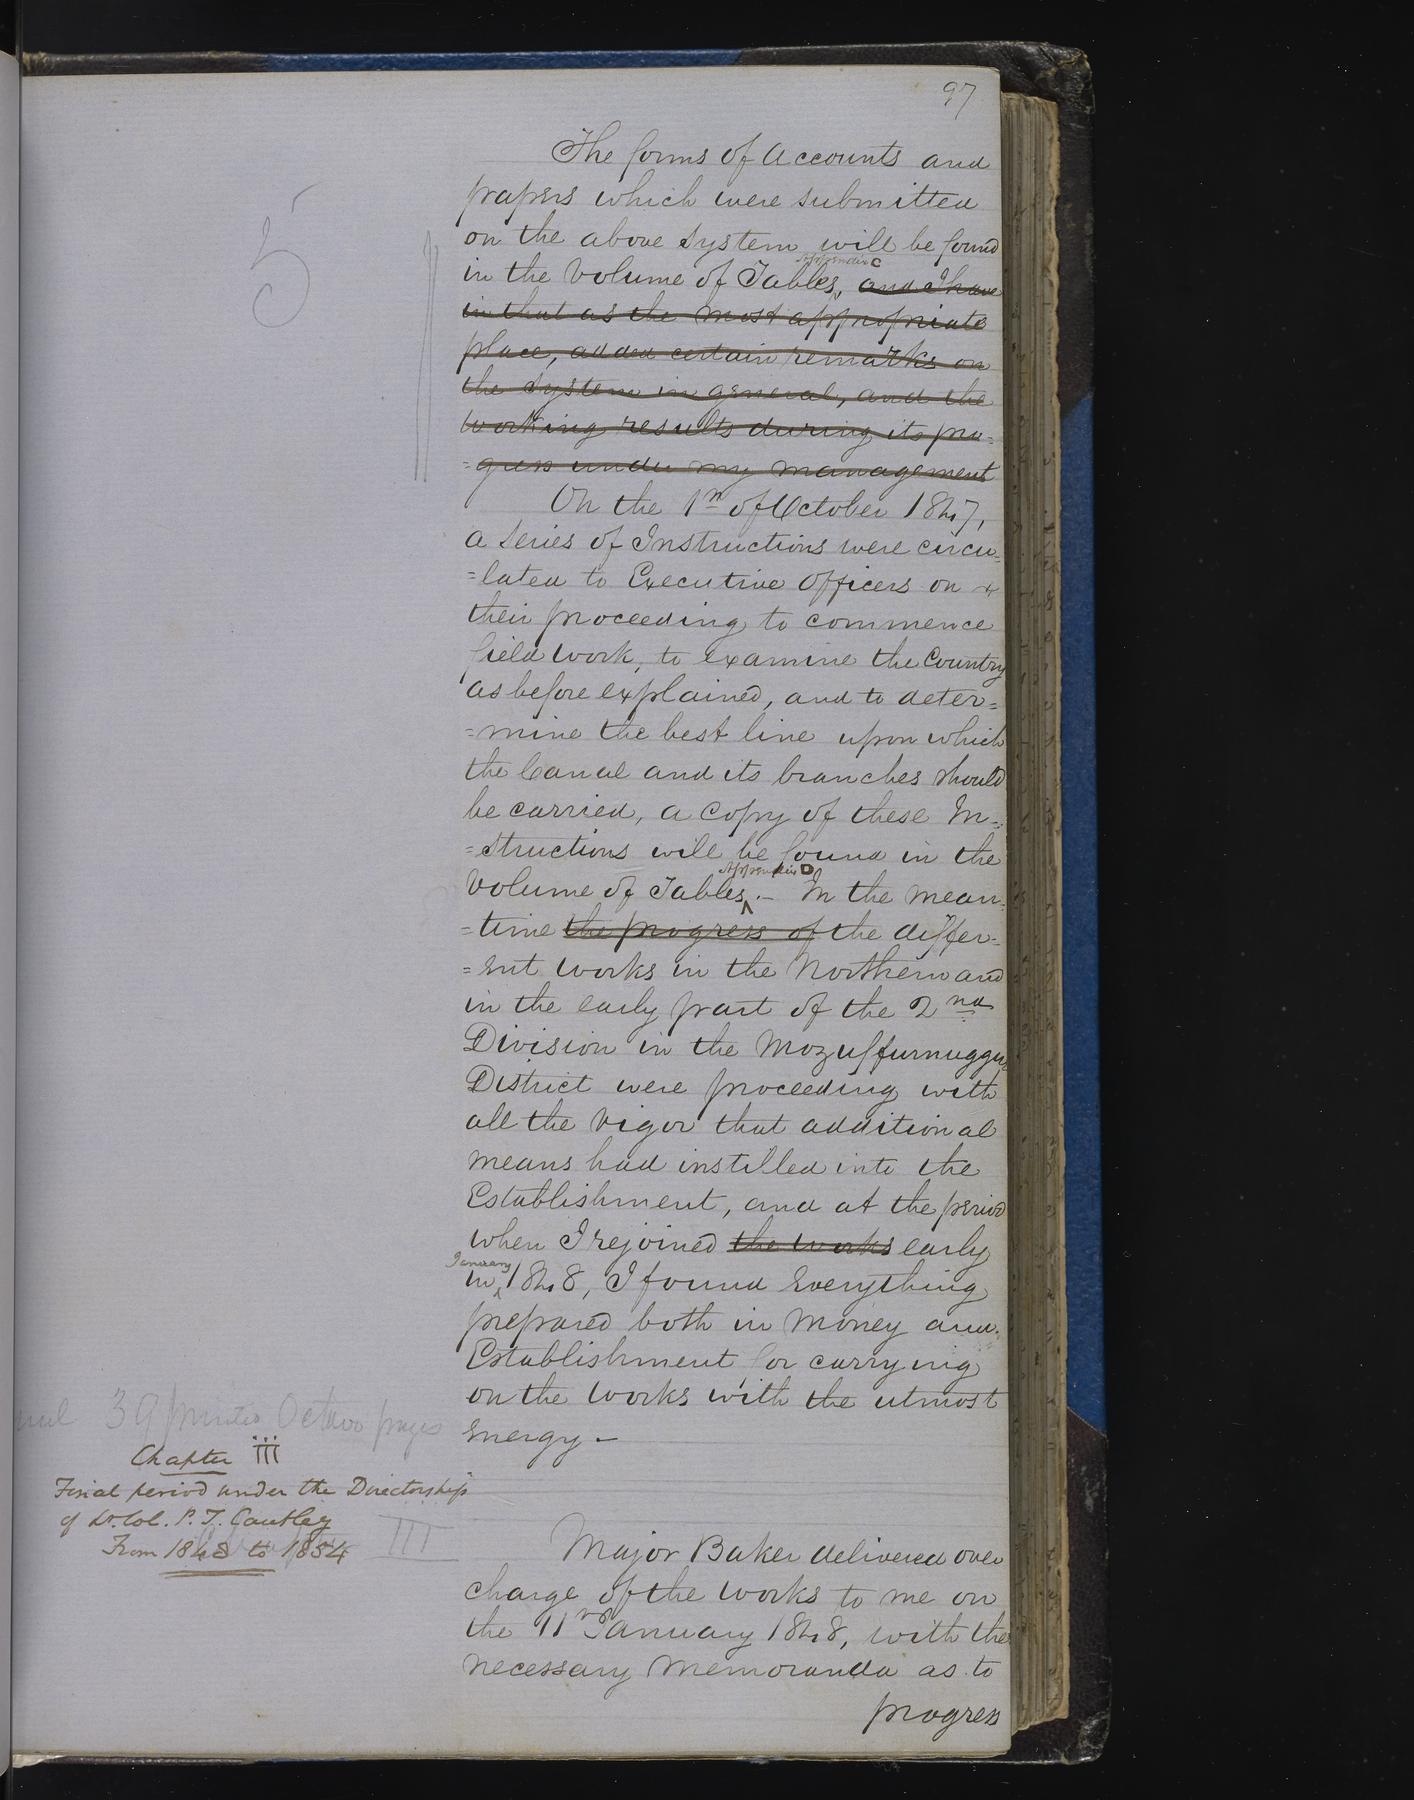 97
5
The forms of Accounts and
papers which were submitted
on the above system will be found
Appendix C
in the Volume of Tables, and I have
in that as the most appropriate
place, added certain remarks on
the system in general, and the
working results during its pro-
=gress under my management
On the 1st of October 1847,
a series of Instructions were circu=
=lated to Executive Officers on
their proceeding to commence
field work, to examine the Country
as before explained, and to deter=
=mine the best line upon which
the Canal and its branches should
be carried, a copy of these In=
=structions will be found in the
Appendix D
Volume of Tables. – In the mean=
=time the progress of the differ=
=ent works in the Northern and
in the early part of the 2nd
Division in the Mozuffurnuggur
District were proceeding with
all the vigor that additional
means had instilled into the
Establishment, and at the period
when I rejoined the works early
January
in 1848, I found everything
prepared both in Money and
Establishment for carrying
on the works with the utmost
energy –
39 printed Octavo pages
Chapter iii
Final period under the Directorship
of Lt. Col. P. T. Cautley
From 1848 to 1854
III
Major Baker delivered over
charge of the works to me on
the 11th January 1848, with the
necessary Memoranda as to
progress